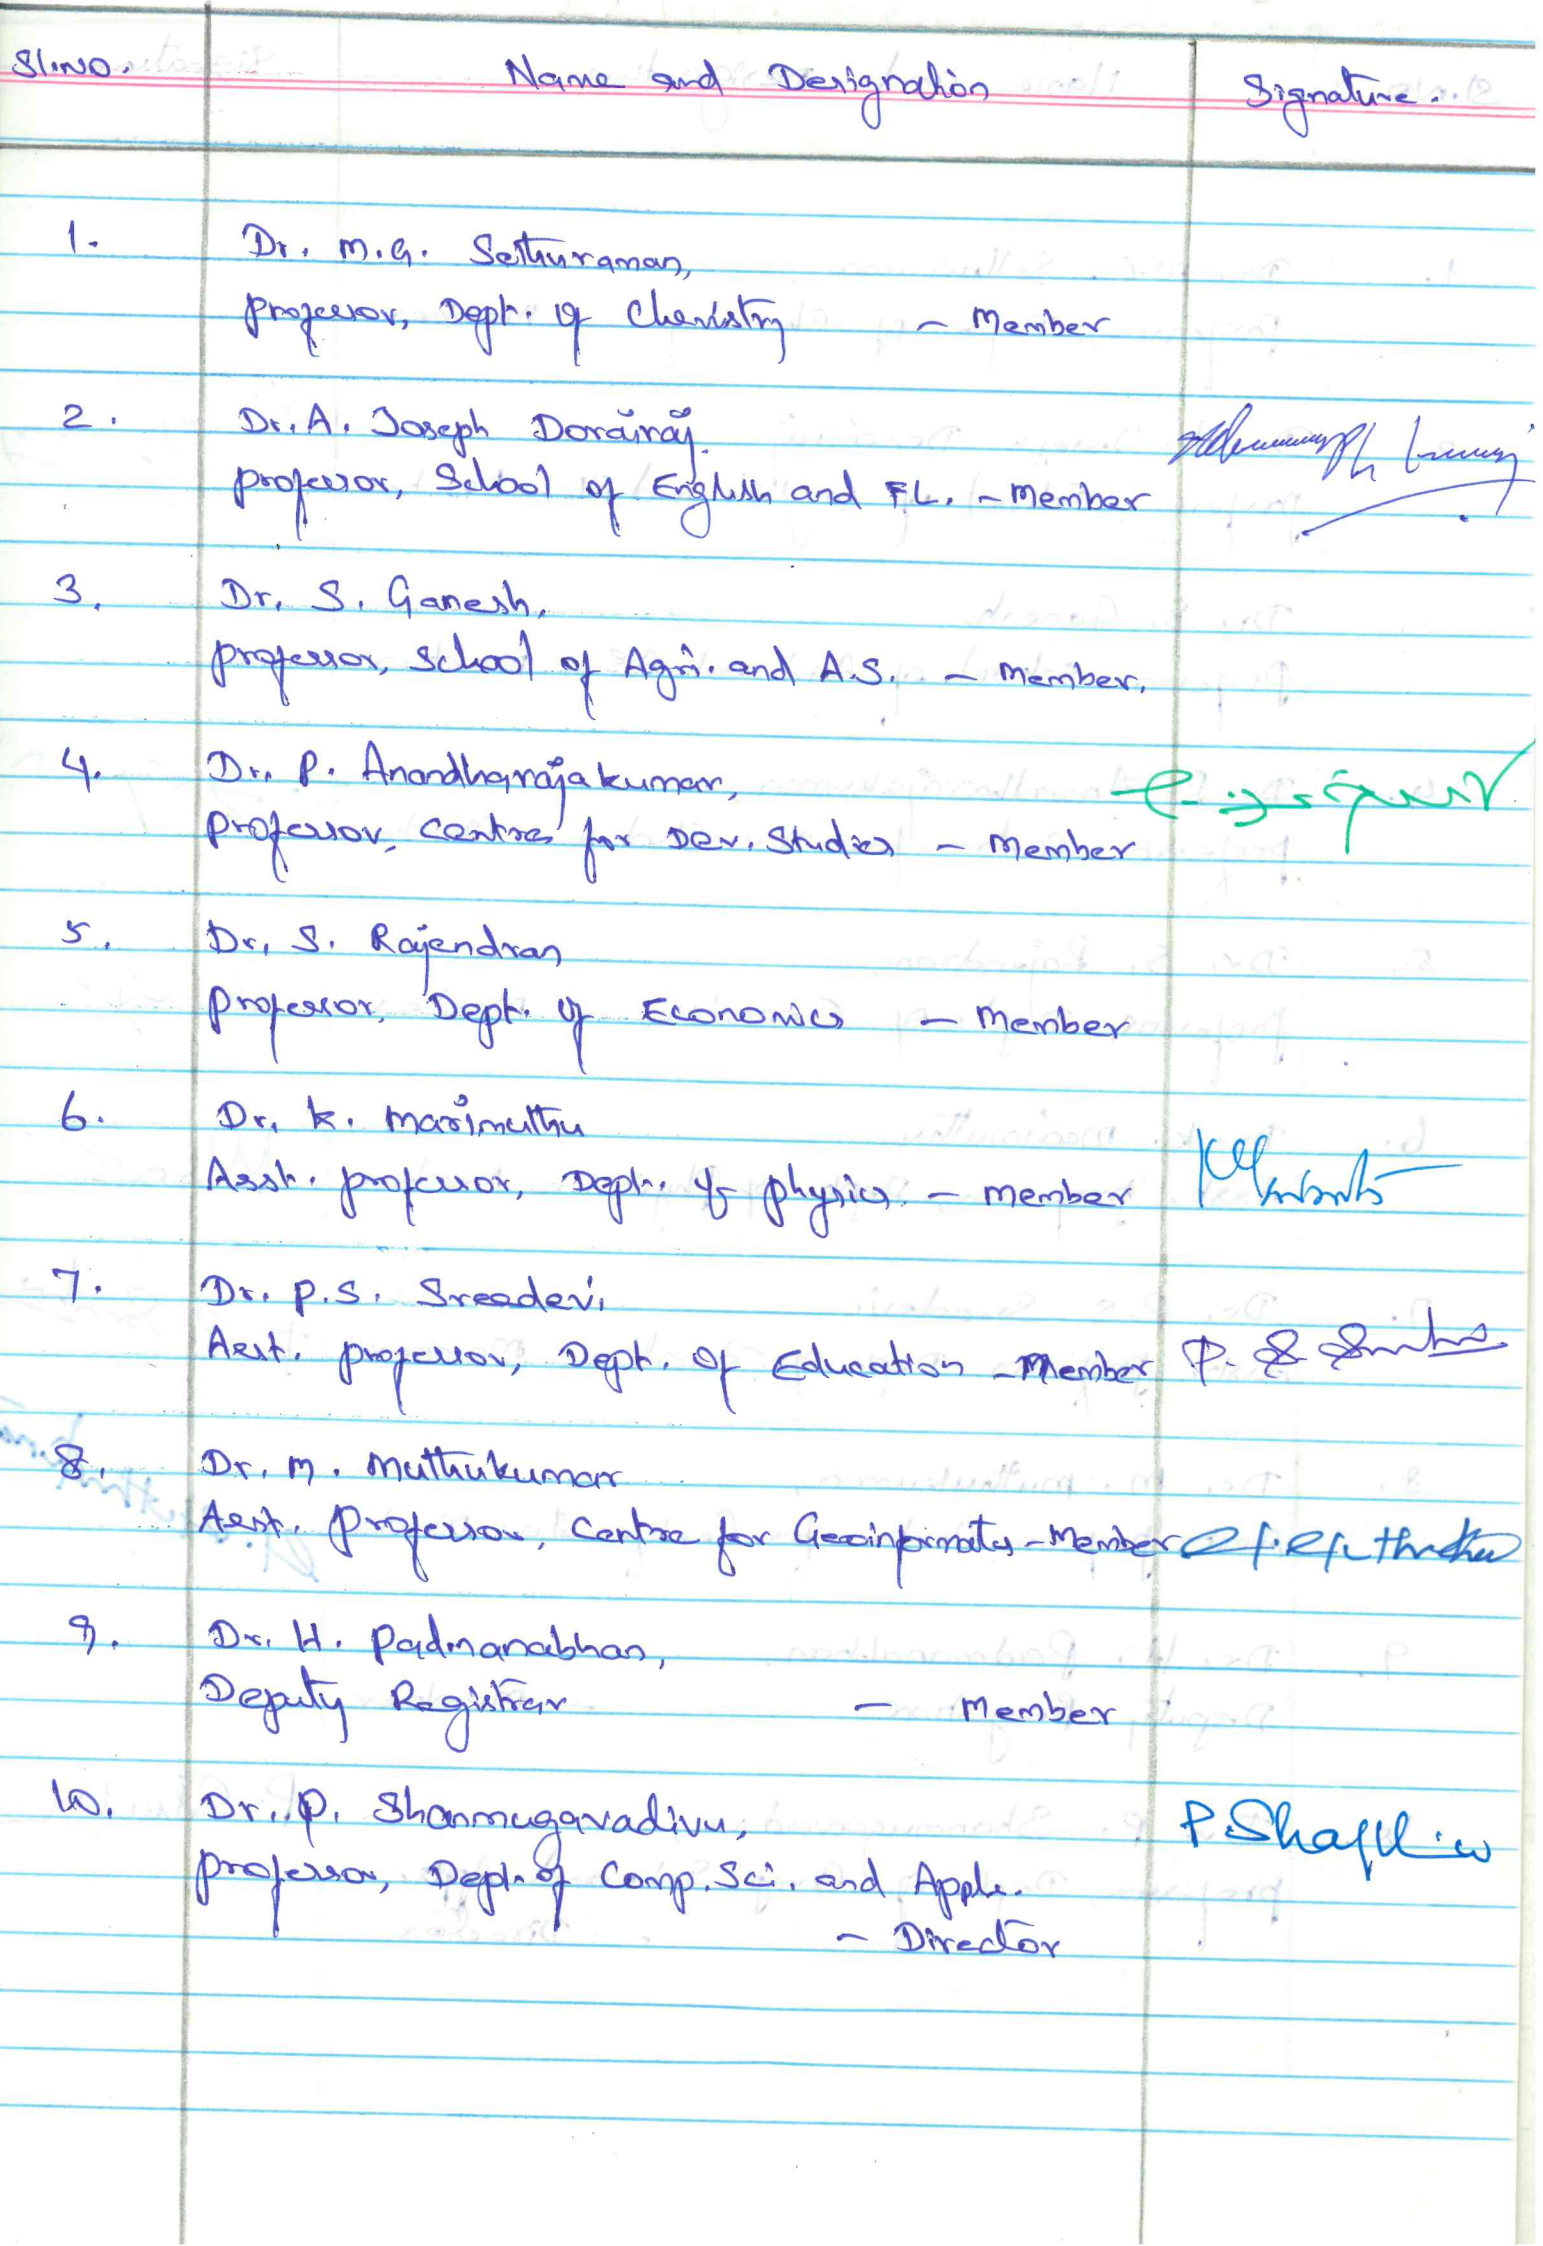 Sl.No. Name and Designation Signature.
1. Dr. M.G. Sethuraman,
Professor, Dept. of Chemistry - Member
2. Dr. A. Joseph Dorairaj
Professor, School of English and FL. - Member
3. Dr. S. Ganesh,
Professor, School of Agri. and A.S. - Member.
4. Dr. P. Anandharajakumar,
Professor, Centre for Dev. Studies - Member
5. Dr. S. Rajendran
Professor, Dept. of Economics - Member
6. Dr. K. Marimuthu
Asst. Professor, Dept. of Physics - Member
7. Dr. P.S. Sreedevi
Asst. Professor, Dept. of Education - Member P. S
8. Dr. M. Muthukumar
Asst. Professor, Centre for Geoinformatics - Member
9. Dr. H. Padmanabhan,
Deputy Registrar - Member
10. Dr. P. Shanmugavadivu,
Professor, Dept. of Comp. Sci. and Appln.
- Director